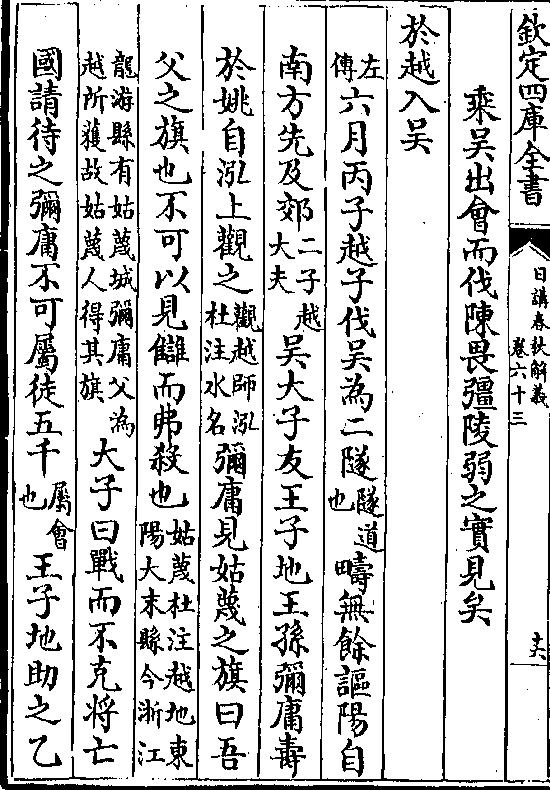 欽定四庫全書
日講春秋解義
卷六十三
十六
乘吳出會而伐陳畏彊陵弱之實見矣
於越入吳
左傳六月丙子越子伐吳為二隧隧道也疇無餘謳陽自
南方先及郊二子越大夫吳大子友王子地王孫彌庸壽
於姚自泓上觀之觀越師泓杜注水名彌庸見姑蔑之旗曰吾
父之旗也不可以見讎而弗殺也姑蔑杜注越地東陽大末縣今浙江
龍游縣有姑蔑城彌庸父為越所獲故姑蔑人得其旗大子曰戰而不克將亡
國請待之彌庸不可屬徒五千屬會也王子地助之乙